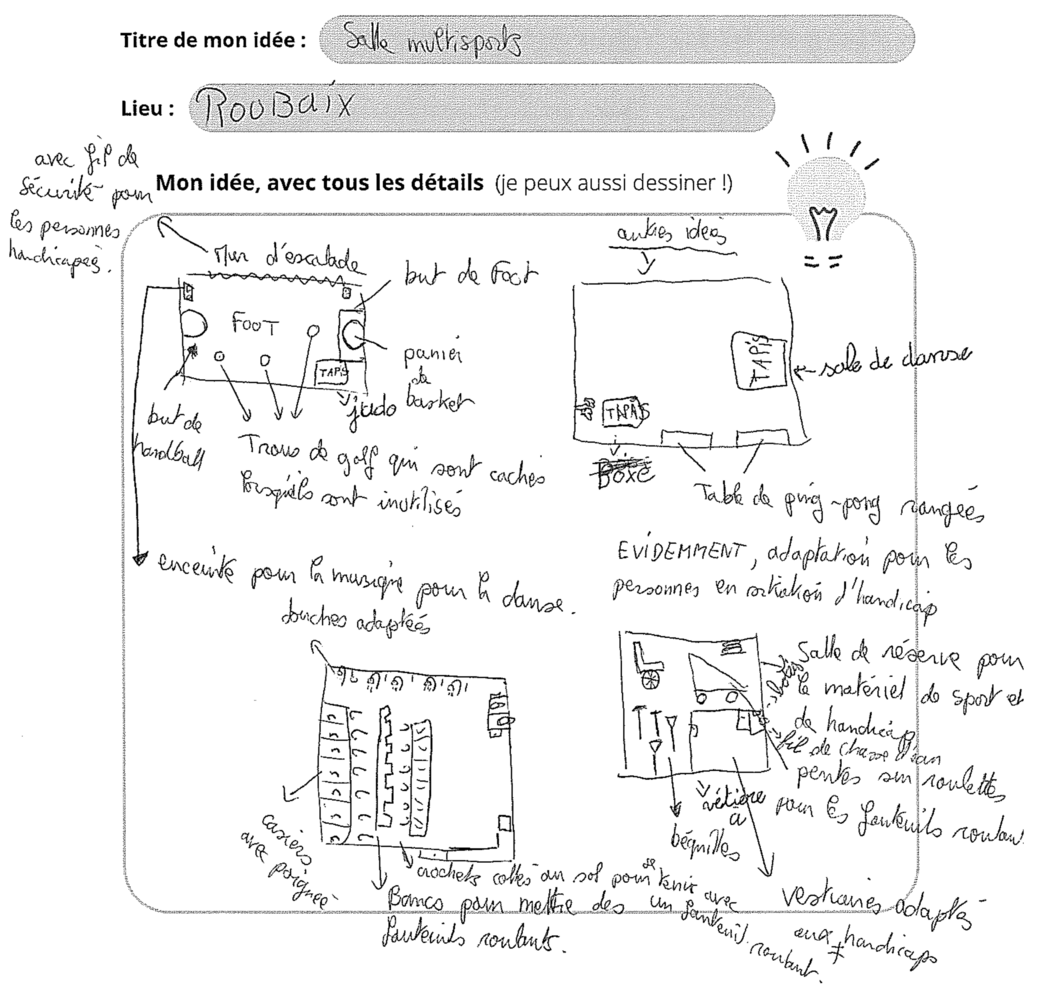 Titre de mon idée : Salle multisports
Lieu : Roubaix
Mon idée, avec tous les détails (je peux aussi dessiner !)
avec fil de
sécurité pour
les personnes
handicapés.
Mur d'escalade
but de Foot
FOOT
panier
de
basket
TAPIS
judo
but de
handball
Trous de golf qui sont cachés
lorsqu'ils sont inutilisés
enceinte pour la musique pour la danse.
autres idées
TAPIS
sale de danse
TAPIS
Boxe
Table de ping-pong rangées
EVIDEMMENT, adaptation pour les
personnes en sitiation d'handicap
douches adaptées
casiers
avec poignée
crochets collés au sol pour se tenir avec
un fauteuil roulant.
Bancs pour mettre des
fauteuils roulants.
Salle de réserve pour
le matériel de sport et
de handicap
fil de chasse d'eau
pentes sur roulettes
pour les fauteuils roulan
béquilles
vestiaires adaptés
aux handicaps
≠